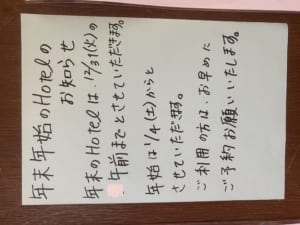 年末年始のHotelの
お知らせ
年末のHotelは、12/31(火)の
午前までとさせていただきます。
年始は1/4(土)からと
させていただきます。
ご利用の方は、お早めに
ご予約お願いいたします。